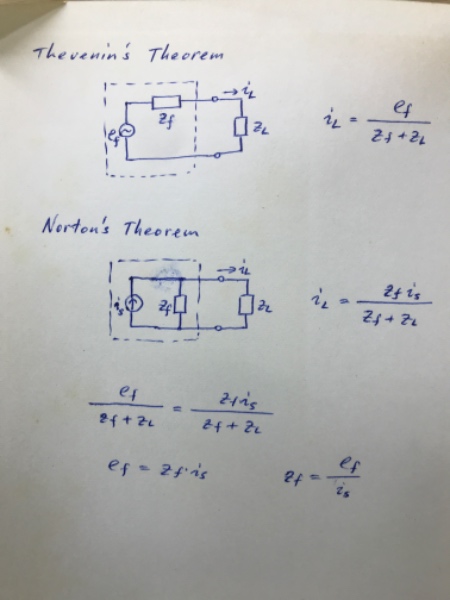 Thevenin's Theorem
→ iL
ef
zf
zL
iL = ef / (zf + zL)
Norton's Theorem
→ iL
is
zf
zL
iL = zf is / (zf + zL)
ef / (zf + zL) = zf is / (zf + zL)
ef = zf · is
zf = ef / is